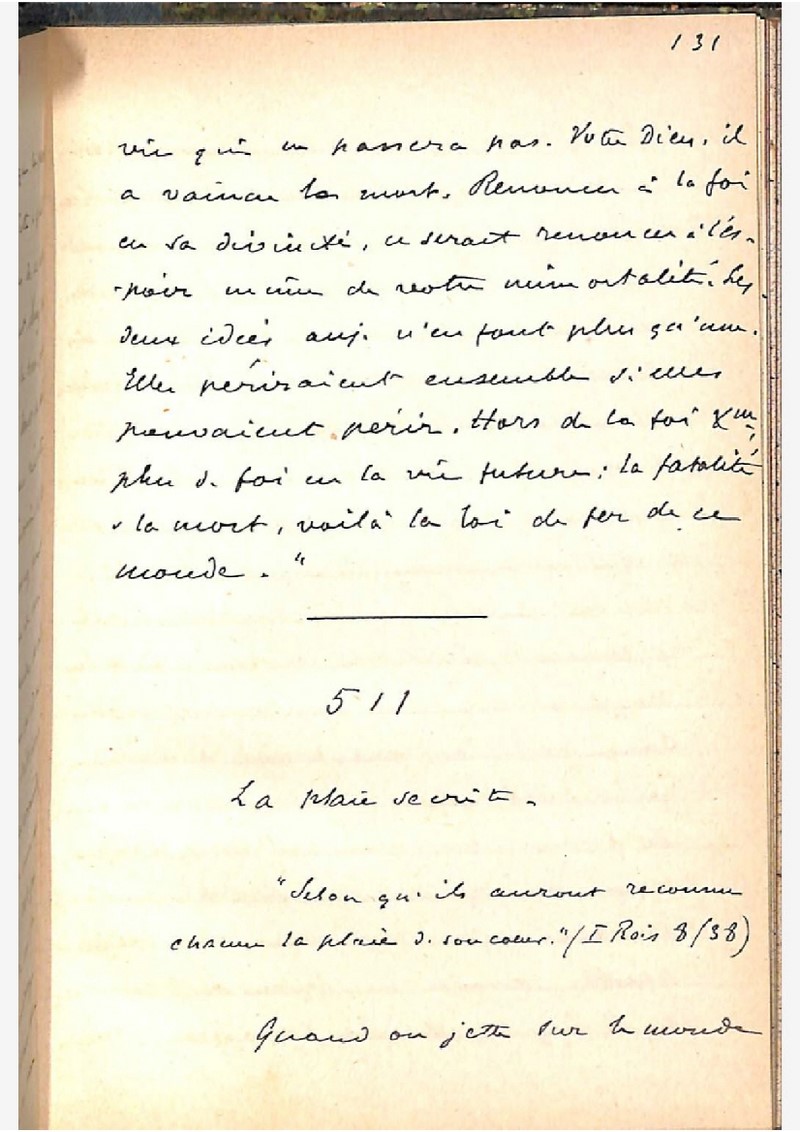 131
vie qui ne passera pas. Votre Dieu, il
a vaincu la mort. Renoncer à la foi
en sa divinité, ce serait renoncer à l'es-
-poir même de votre immortalité. Les
deux idées auj. n'en font plus qu'une.
Elles périraient ensemble si elles
pouvaient périr. Hors de la foi Xne,
plus de foi en la vie future; la fatalité
& la mort, voilà la loi de fer de ce
monde."
511
La plaie secrète.
"Selon qu'ils auront reconnu
chacun la plaie de son coeur." (I Rois 8/38)
Quand on jette sur le monde